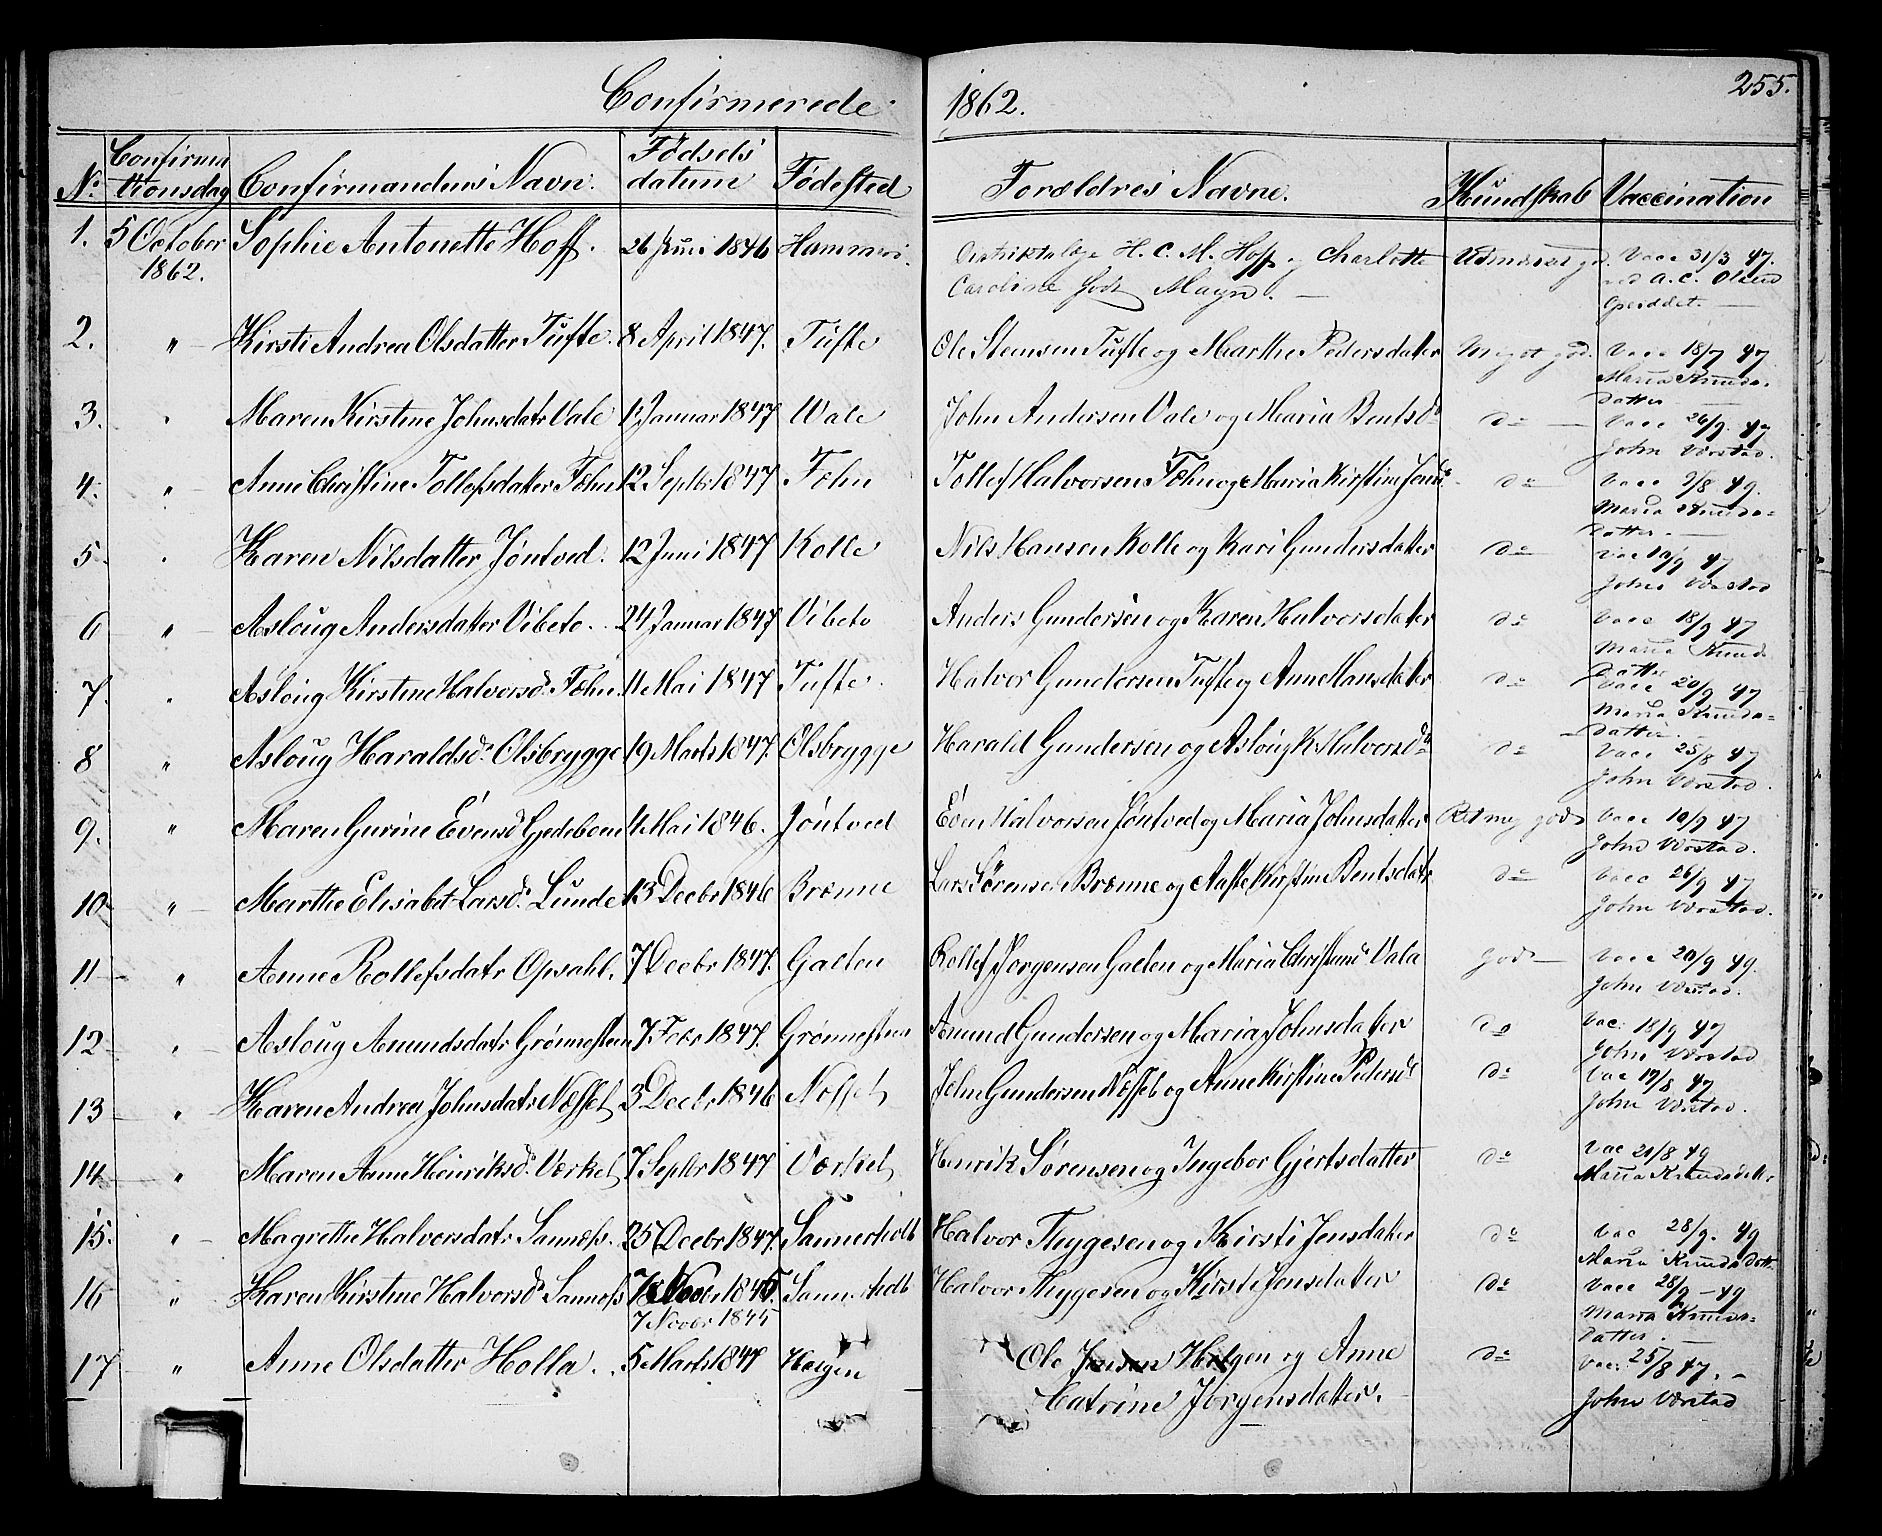 Confirmerede 1862. 255.
No. Confirmationsdag Confirmandens Navn. Fødsels datum Fødested Forældres Navne. Kundskab Vaccination
1. 5 October 1862. Sophie Antonette Hoff. 26 Juni 1846 Distriktslæge H. C. M. Hoff og Charlotte Caroline født Vacc 31/3 47. ved A. C. Olsen
2. " Kirsti Andrea Olsdatter Tufte. 8 April 1847. Tufte Ole Steensen Tufte og Marthe Pedersdatter Meget god. Vacc 18/9 47 Maria Knuds-datter
3. " Maren Kirstine Johnsdatr Vale 1 Januar 1847 Vale John Andersen Vale og Maria Bentsdr do Vacc 26/9 47 John Værstad.
4. " Anne Christine Tollefsdatter Fæhn 12 Septbr 1847 Fæhn Tollef Halvorsen Fæhn og Maria Kirstine do Vacc 2/8 49. Maria Knuds-datter.
5. " Karen Nilsdatter Jøntved. 12 Juni 1847 Kolle Nils Hansen Kolle og Kari Gundersdatter do Vac 10/9 47 John Værstad
6 " Asloug Andersdatter Vibeto. 24 Januar 1847 Vibeto Anders Gundersen og Karen Halvorsdatter do Vacc 18/9 47 Maria Knuds Datter
7. " Asloug Kirstine Halvorsd. Fæhn. 11 Mai 1847 Tufte. Halvor Gundersen Tufte og Anne Hansdatter do Vacc 20/9 47 Maria Knuds-datter.
8 " Asloug Haraldsd. Olsbrygge 19 Marts 1847. Olsbrygge Harald Gundersen og Asloug K. Halvorsdr do Vacc 25/8 47 John Værstad.
9. " Maren Gurine Evensd Gjedeboen 11 Mai 1846. Jøntved Even Halvorsen Jøntved og Maria Johnsdatter Ret meg god Vacc 10/9 47 John Værstad.
10 " Marthe Elisabet Larsd. Lunde 13 Decbr 1846 Brænne Lars Sørensen Brænne og Aaste Kirstine Bentsdatr do Vacc 26/9 47 John Værstad.
11 " Anne Rollefsdatr Opsahl. 7 Decbr 1847. Galten Rollef Jørgensen Galten og Maria Vala god Vacc 20/9 49. John Værstad.
12 " Asloug Amundsdatr Grønnesteen 7 Febr 1847. Grønnesteen Amund Gundersen og Maria Johnsdatter do Vac: 18/9 47 John Værstad
13 " Karen Andrea Johnsdatr Næsset 3 Decbr 1846 Næsset John Gundersen Næsset og Anne Kirstine Pedersdr do Vac 19/8 47 John Værstad.
14 " Maren Anne Henriksd. Værket 7 Septbr 1847 Værket Henrik Sørensen og Ingebor Gjertsdatter do Vac 21/8 49 Maria Knudsdattr
15. " Magrethe Halvorsdatr Sannæss. 25 Decbr 1847. Sannerholt Halvor Thygesen og Kirsti Jensdatter do Vac 28/9. 49 Maria Knudsdatr
16 " Karen Kirstine Halvorsd. Sannæss 7 Novbr 1845 Sannerholt Halvor Thygesen og Kirsti Jensdatter do Vacc 28/9 - 49 Maria Knuds-datter.
7 Novbr 1845
17 " Anne Olsdatter Holla. 5 Marts 1847 Haegen Ole Jensen Helgen og Anne Catrine Jørgensdatter. do Vac: 25/8 47. John Værstad